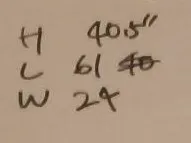 H 40.5"
L 61
W 24